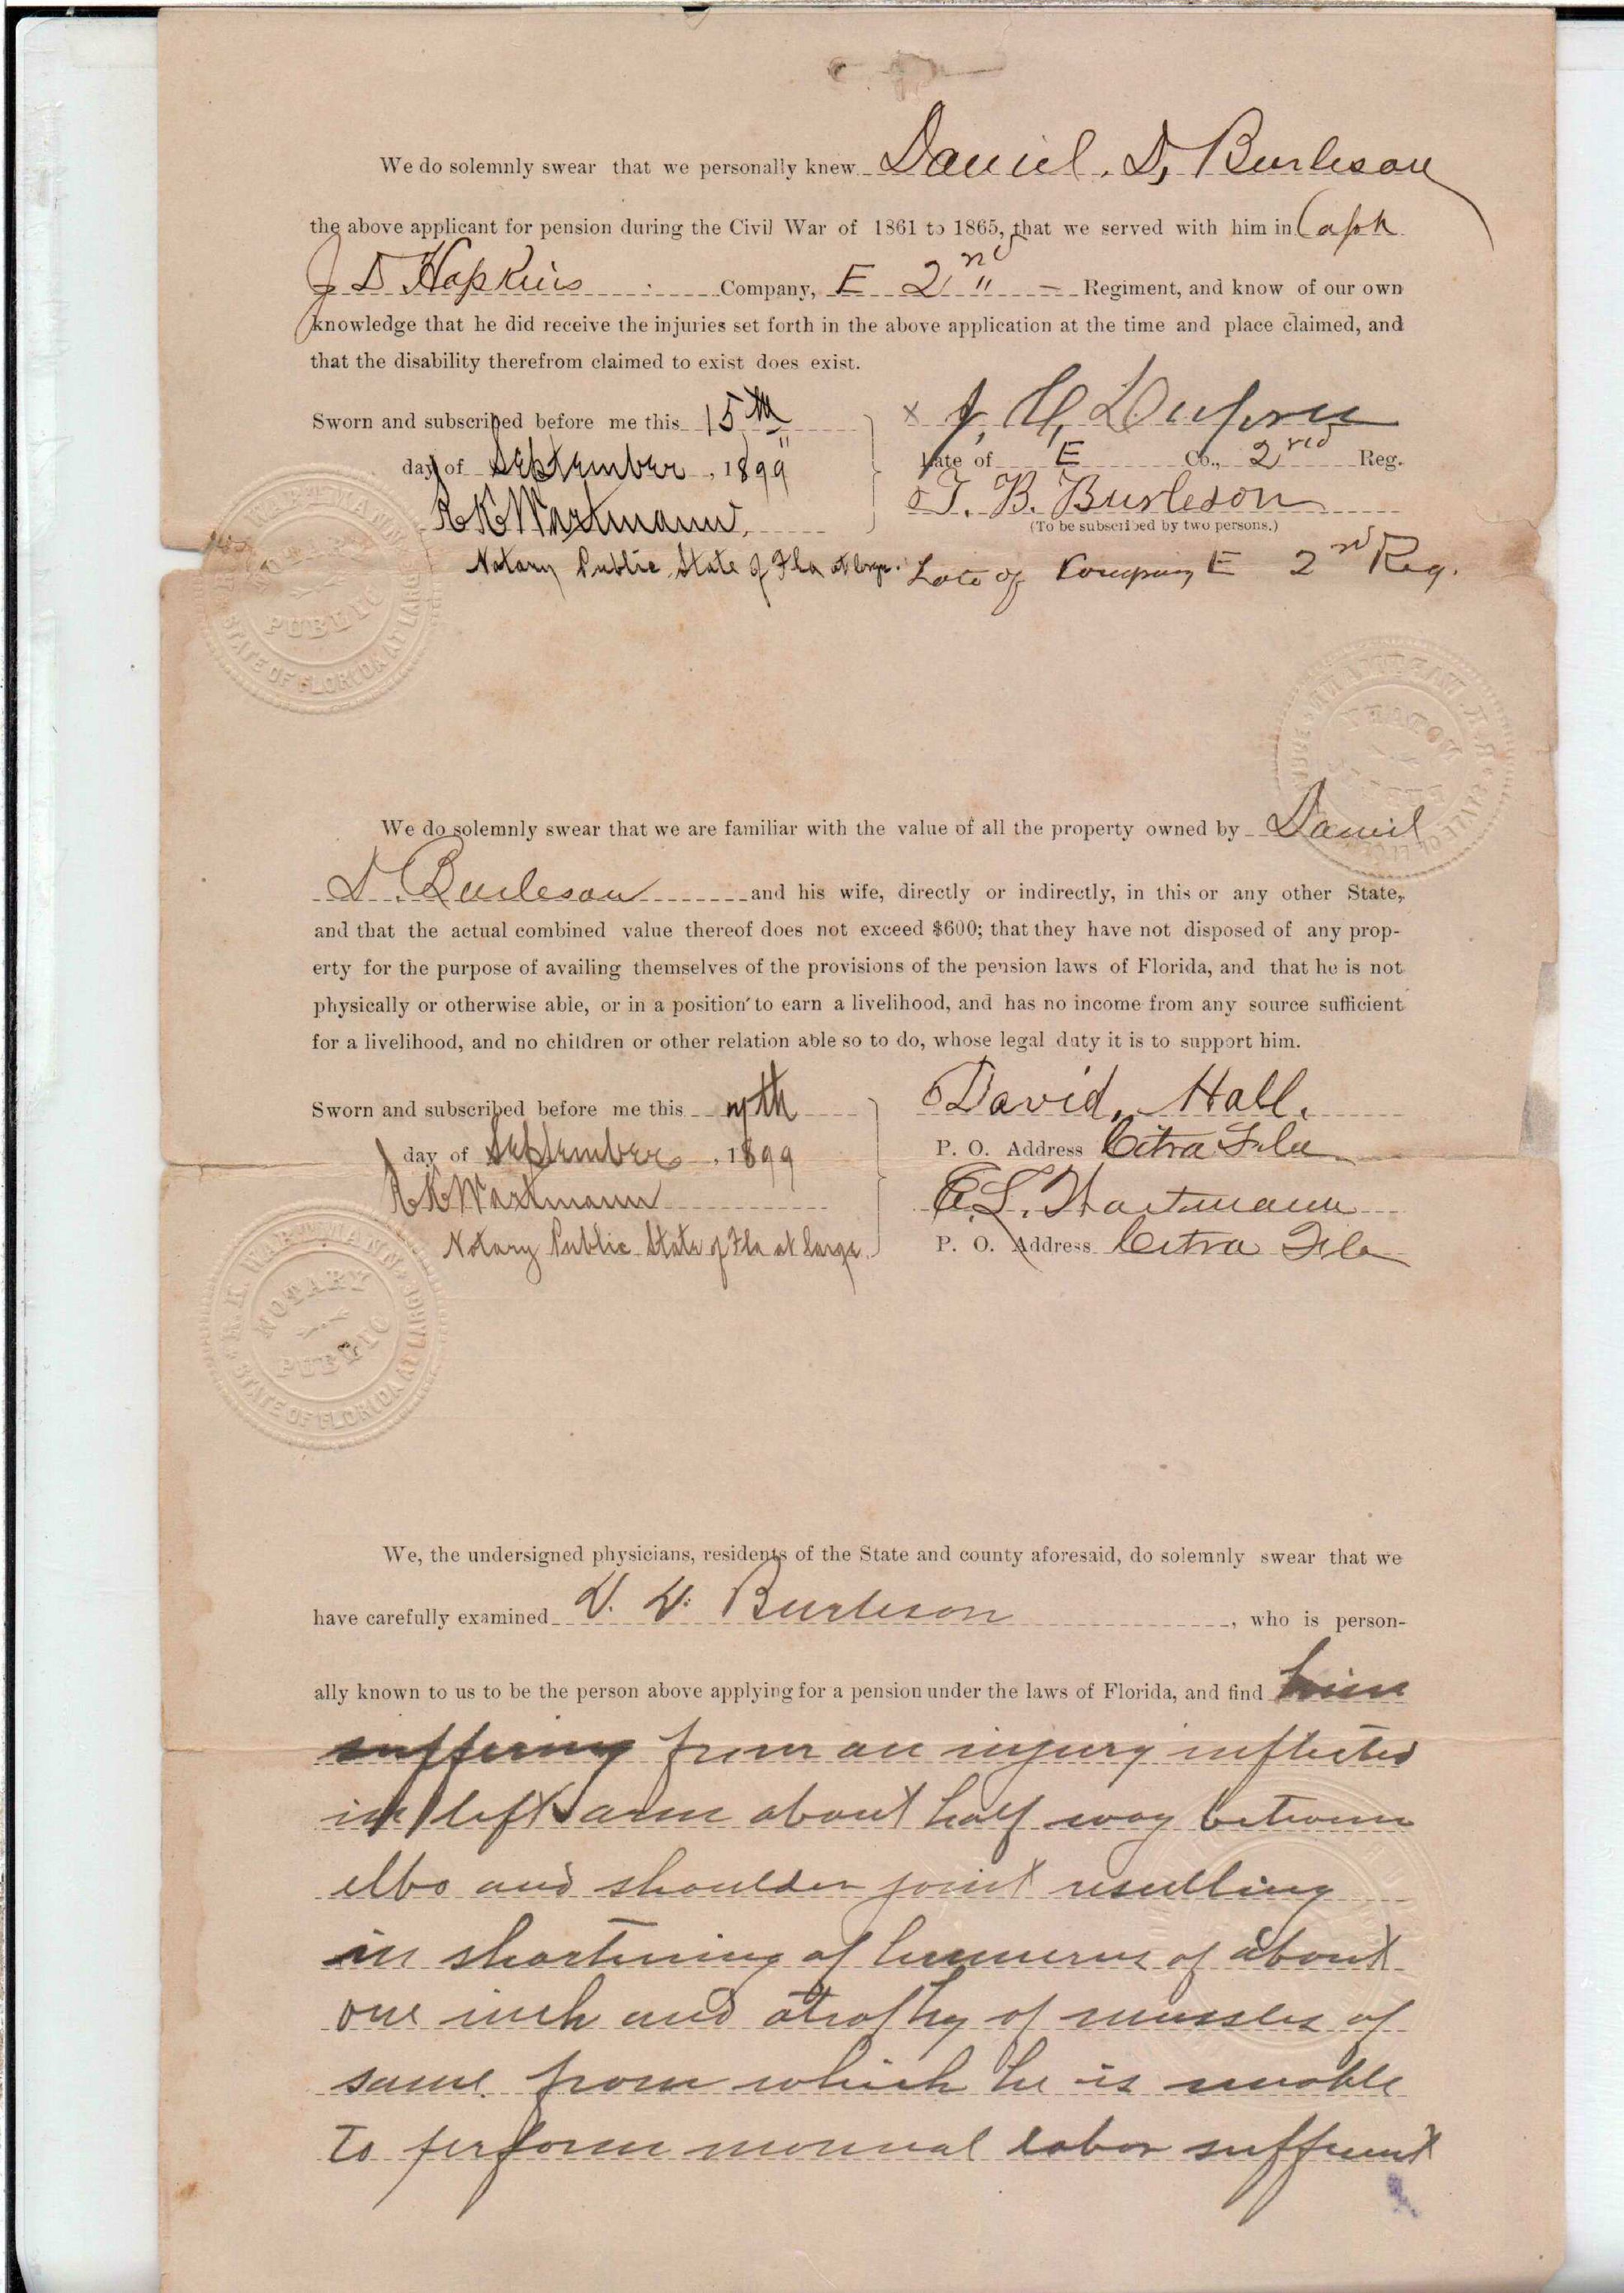 We do solemnly swear that we personally knew Daniel. D, Burleson
the above applicant for pension during the Civil War of 1861 to 1865, that we served with him in Capt
J D Hopkins Company, E 2nd " Regiment, and know of our own
knowledge that he did receive the injuries set forth in the above application at the time and place claimed, and
that the disability therefrom claimed to exist does exist.
Sworn and subscribed before me this 15th
day of September, 1899
R K Wartmann,
Notary Public, State of Fla at large.
x J. H. Dupree
Late of E Co., 2nd Reg.
T. B. Burleson
(To be subscribed by two persons.)
Late of Company E 2nd Reg.
R. K. WARTMANN
NOTARY
PUBLIC
STATE OF FLORIDA AT LARGE
We do solemnly swear that we are familiar with the value of all the property owned by Daniel
D. Burleson and his wife, directly or indirectly, in this or any other State,
and that the actual combined value thereof does not exceed $600; that they have not disposed of any prop-
erty for the purpose of availing themselves of the provisions of the pension laws of Florida, and that he is not
physically or otherwise able, or in a position to earn a livelihood, and has no income from any source sufficient
for a livelihood, and no children or other relation able so to do, whose legal duty it is to support him.
Sworn and subscribed before me this 7th
day of September, 1899
R K Wartmann
Notary Public State of Fla at large.
David, Hall.
P. O. Address Citra Fla
E. L. Wartmann
P. O. Address Citra Fla
R. K. WARTMANN
NOTARY
PUBLIC
STATE OF FLORIDA AT LARGE
We, the undersigned physicians, residents of the State and county aforesaid, do solemnly swear that we
have carefully examined D. D. Burleson, who is person-
ally known to us to be the person above applying for a pension under the laws of Florida, and find him
suffering from an injury inflicted
in left arm about half way between
elbo and shoulder joint resulting
in shortening of humerus of about
one inch and atrophy of mussles of
same. from which he is unable
to perform monual labor suffient